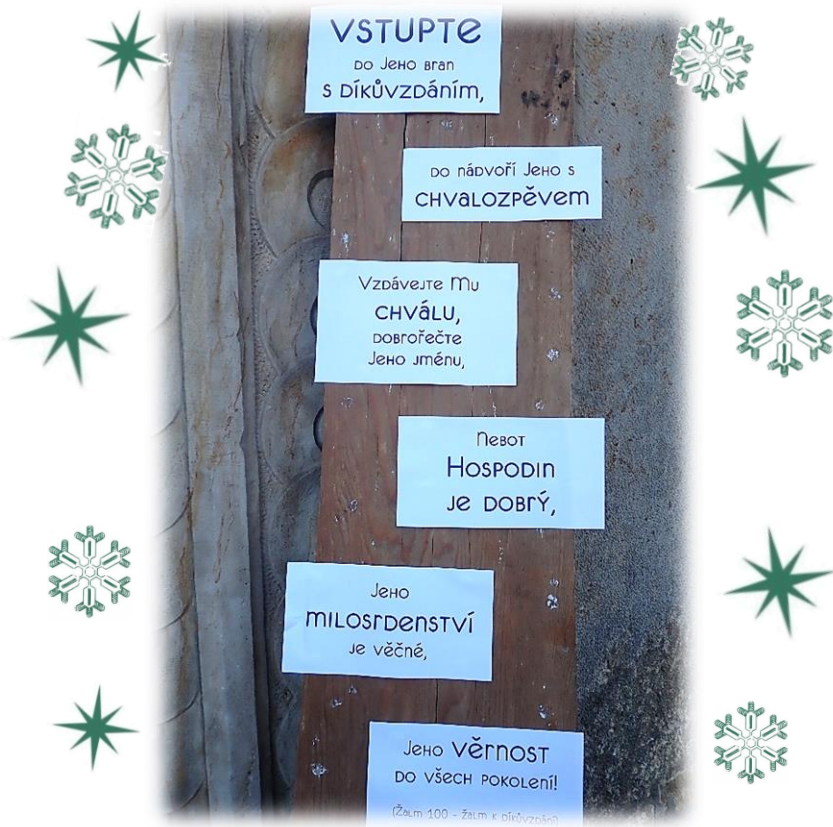 VSTUPTE
DO JEHO BRAN
S DÍKŮVZDÁNÍM,
DO NÁDVOŘÍ JEHO S
CHVALOZPĚVEM
VZDÁVEJTE MU
CHVÁLU,
DOBROŘEČTE
JEHO JMÉNU,
NEBOT
HOSPODIN
JE DOBRÝ,
JEHO
MILOSRDENSTVÍ
JE VĚČNÉ,
JEHO VĚRNOST
DO VŠECH POKOLENÍ!
(ŽALM 100 - ŽALM K DÍKŮVZDÁNÍ)